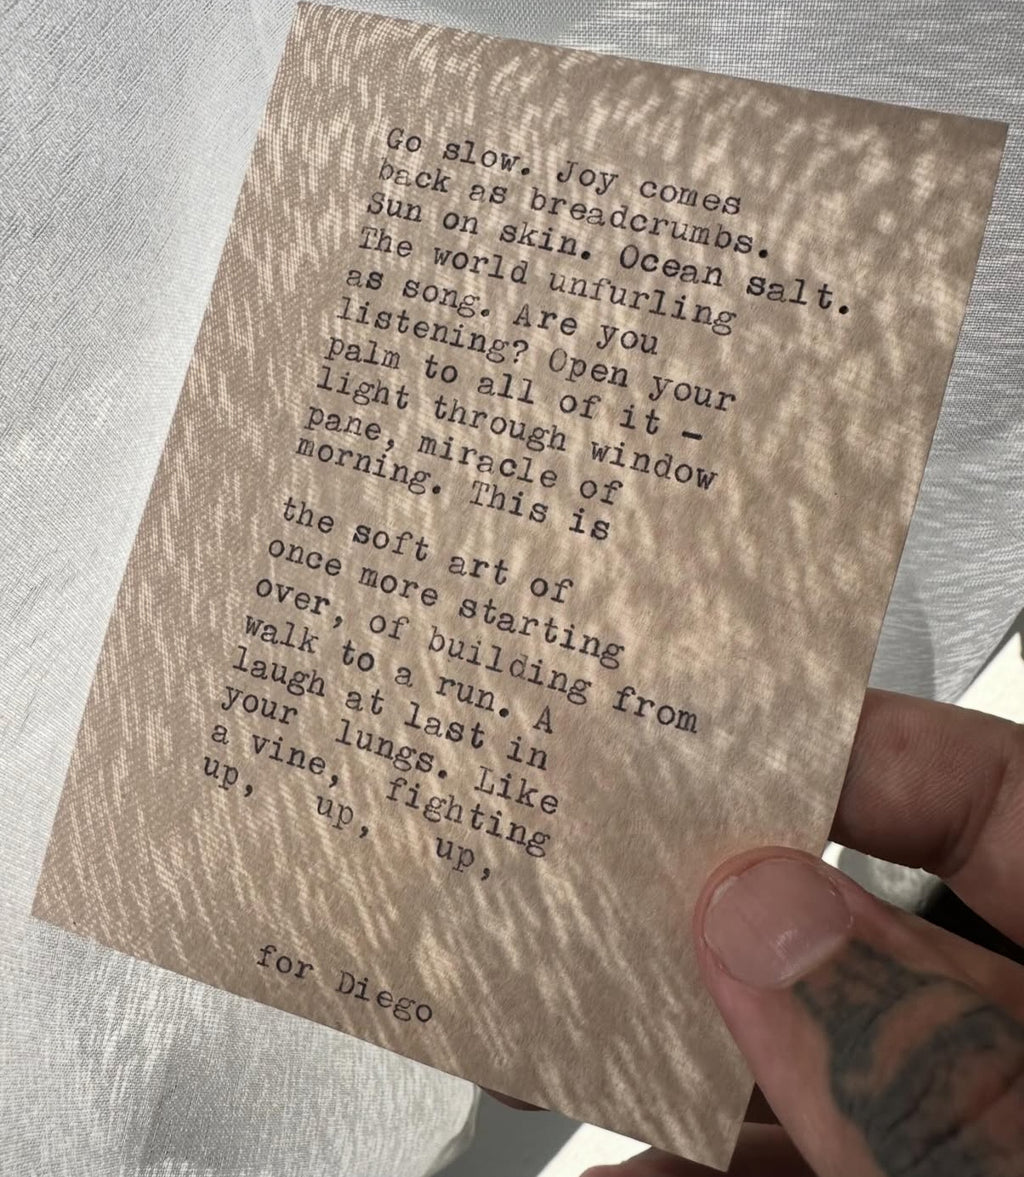 Go slow. Joy comes
back as breadcrumbs.
Sun on skin. Ocean salt.
The world unfurling
as song. Are you
listening? Open your
palm to all of it –
light through window
pane, miracle of
morning. This is
the soft art of
once more starting
over, of building from
walk to a run. A
laugh at last in
your lungs. Like
a vine, fighting
up, up, up,
for Diego